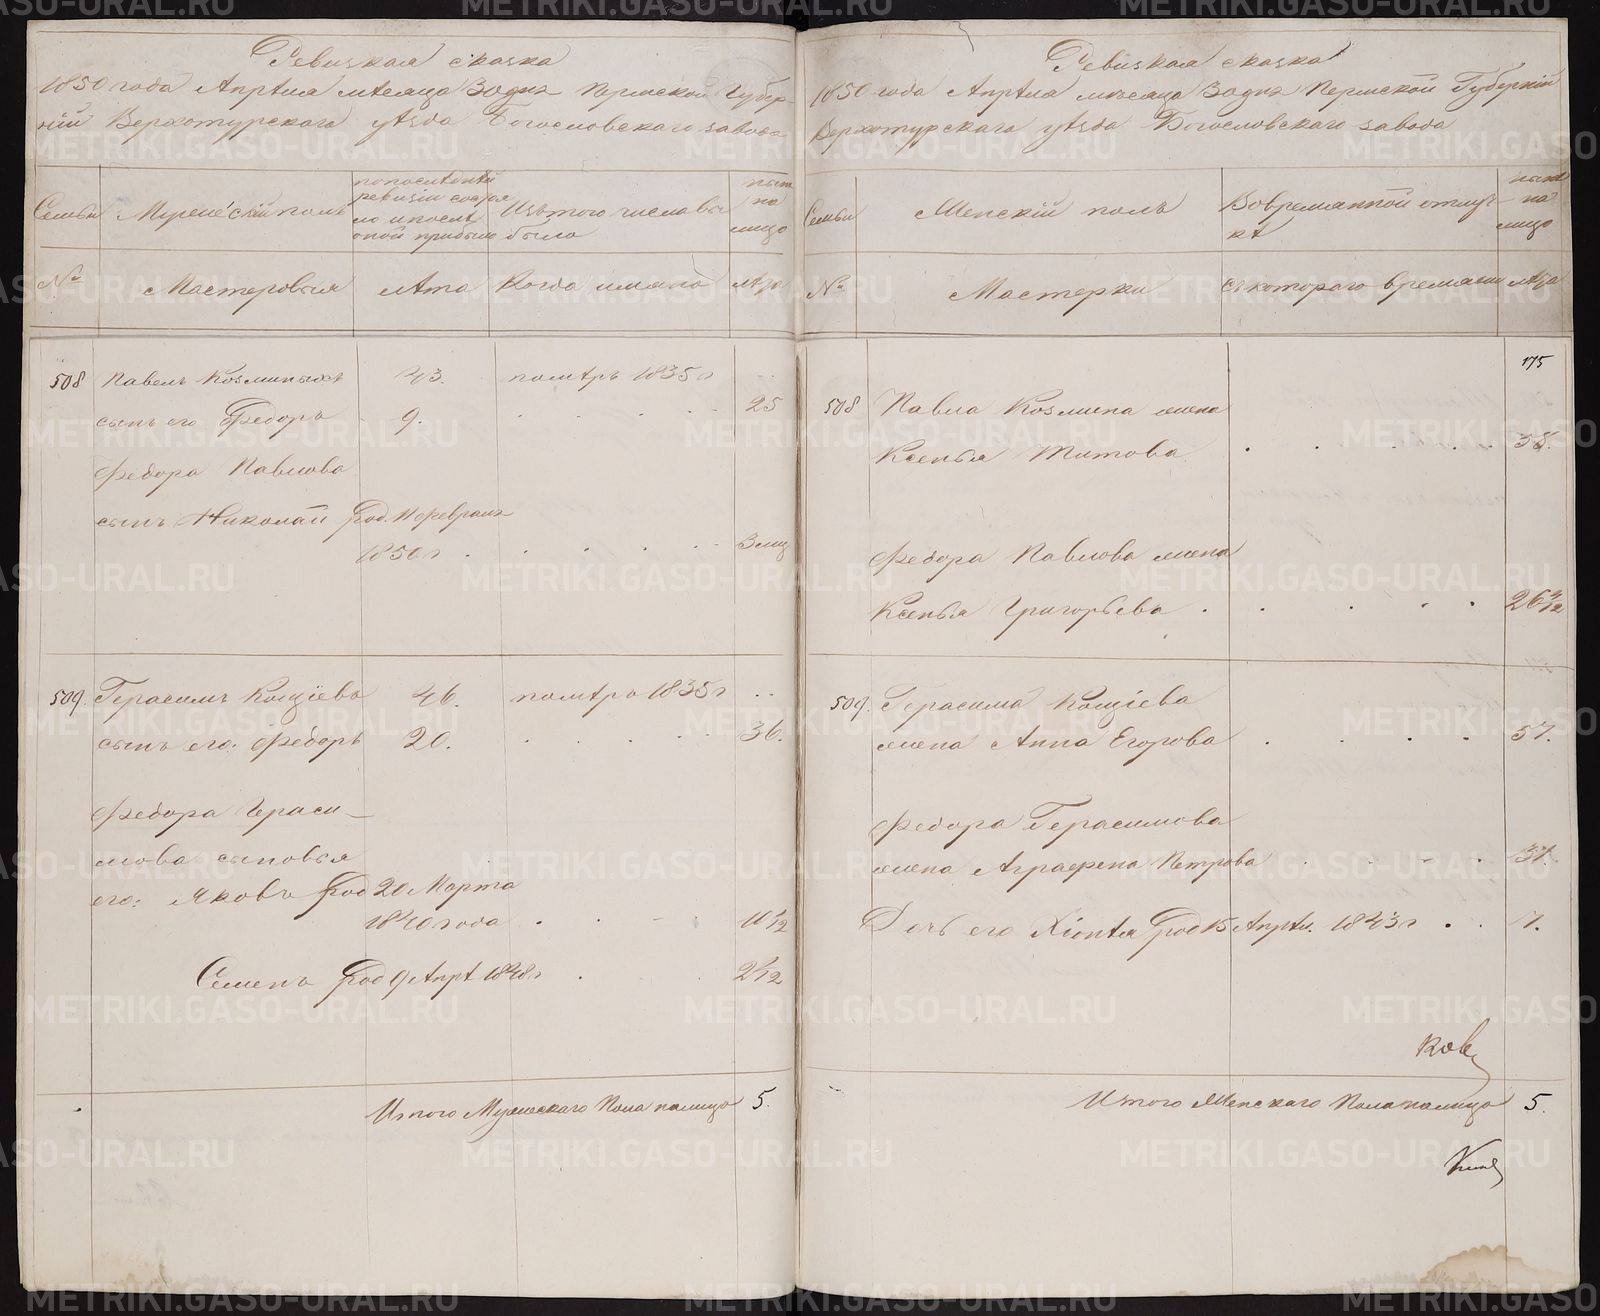 Ревизкая сказка
1850 года Апрѣля мѣсяца 30 дня Пермской Губер-
нии Верхотурскаго уѣзда Богословскаго завода
Семьи
Мужескiй полъ
попоследнѣй
ревизiи состоя
ло и послѣ
оной прибыло
Изъ того числа вы
было
нынѣ
на
лицо
№
Мастеровыя
Лѣта
Когда имяно
Лѣта
508 Павелъ Козминыхъ 43. помѣръ 1835 г
сынъ его Федоръ 9. 25
Федора Павлова
сынъ Николай род. Февраля
1850 г 3 мц
509. Герасимъ Кощiевъ 46. помѣръ 1835 г
сынъ его: Федоръ 20. 36.
Федора Гераси-
мова сыновья
его: Яковъ род 20 Марта
1840 года 10 1/12
Семенъ род 9 Апрѣ 1848 г 2 1/12
Итого Мужескаго Пола налицо 5.
Ревизкая сказка
1850 года Апрѣля мѣсяца 30 дня Пермской Губернiи
Верхотурскаго уѣзда Богословскаго завода
Семьи
Женскiй полъ
Вовремянной отлуч-
кѣ
нынѣ
на
лицо
№
Мастерки
Съ котораго времяни
Лѣта
175
508 Павла Козмина жена
Ксенья Титова 58.
Федора Павлова жена
Ксенья Григорьева 26 4/12
509. Герасима Кощiева
жена Анна Егорова 57.
Федора Герасимова
жена Аграфена Петрова 37.
Дочь его Хионѣя род 15 Апрѣл. 1843 г 7.
Итого Женскаго Пола налицо 5.
METRIKI.GASO-URAL.RU